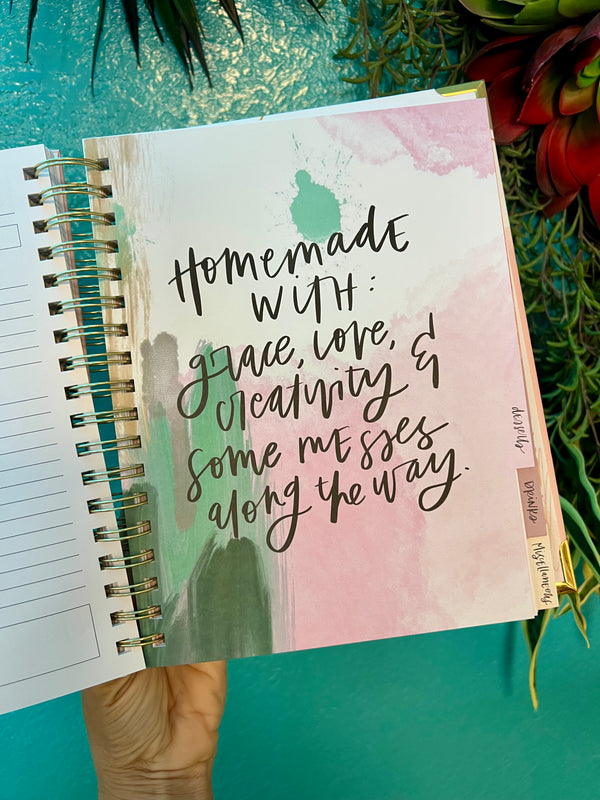 HomemadE
WiTH:
grace, love,
creativity &
some mEsses
along the way.
desserts
drinks
Miscellaneous